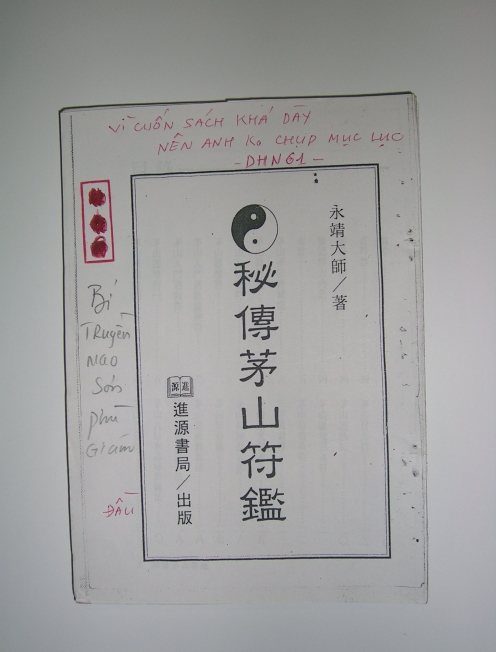 VÌ CUỐN SÁCH KHÁ DÀY
NÊN ANH Ko CHỤP MỤC LỤC
- DHN61 -
永靖大師/著
秘傳茅山符鑑
進源
進源書局/出版
Bí
TRUYỀN
MAO
Sơn
phù
Giám
ĐẦU